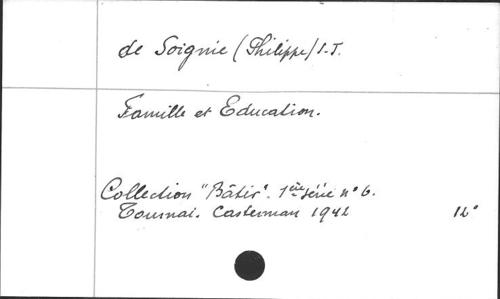 de Soignie (Philippe) S.J.
Famille et Education.
Collection "Bâtir". 1ère série n° 6.
Tournai. Casterman 1942 12°